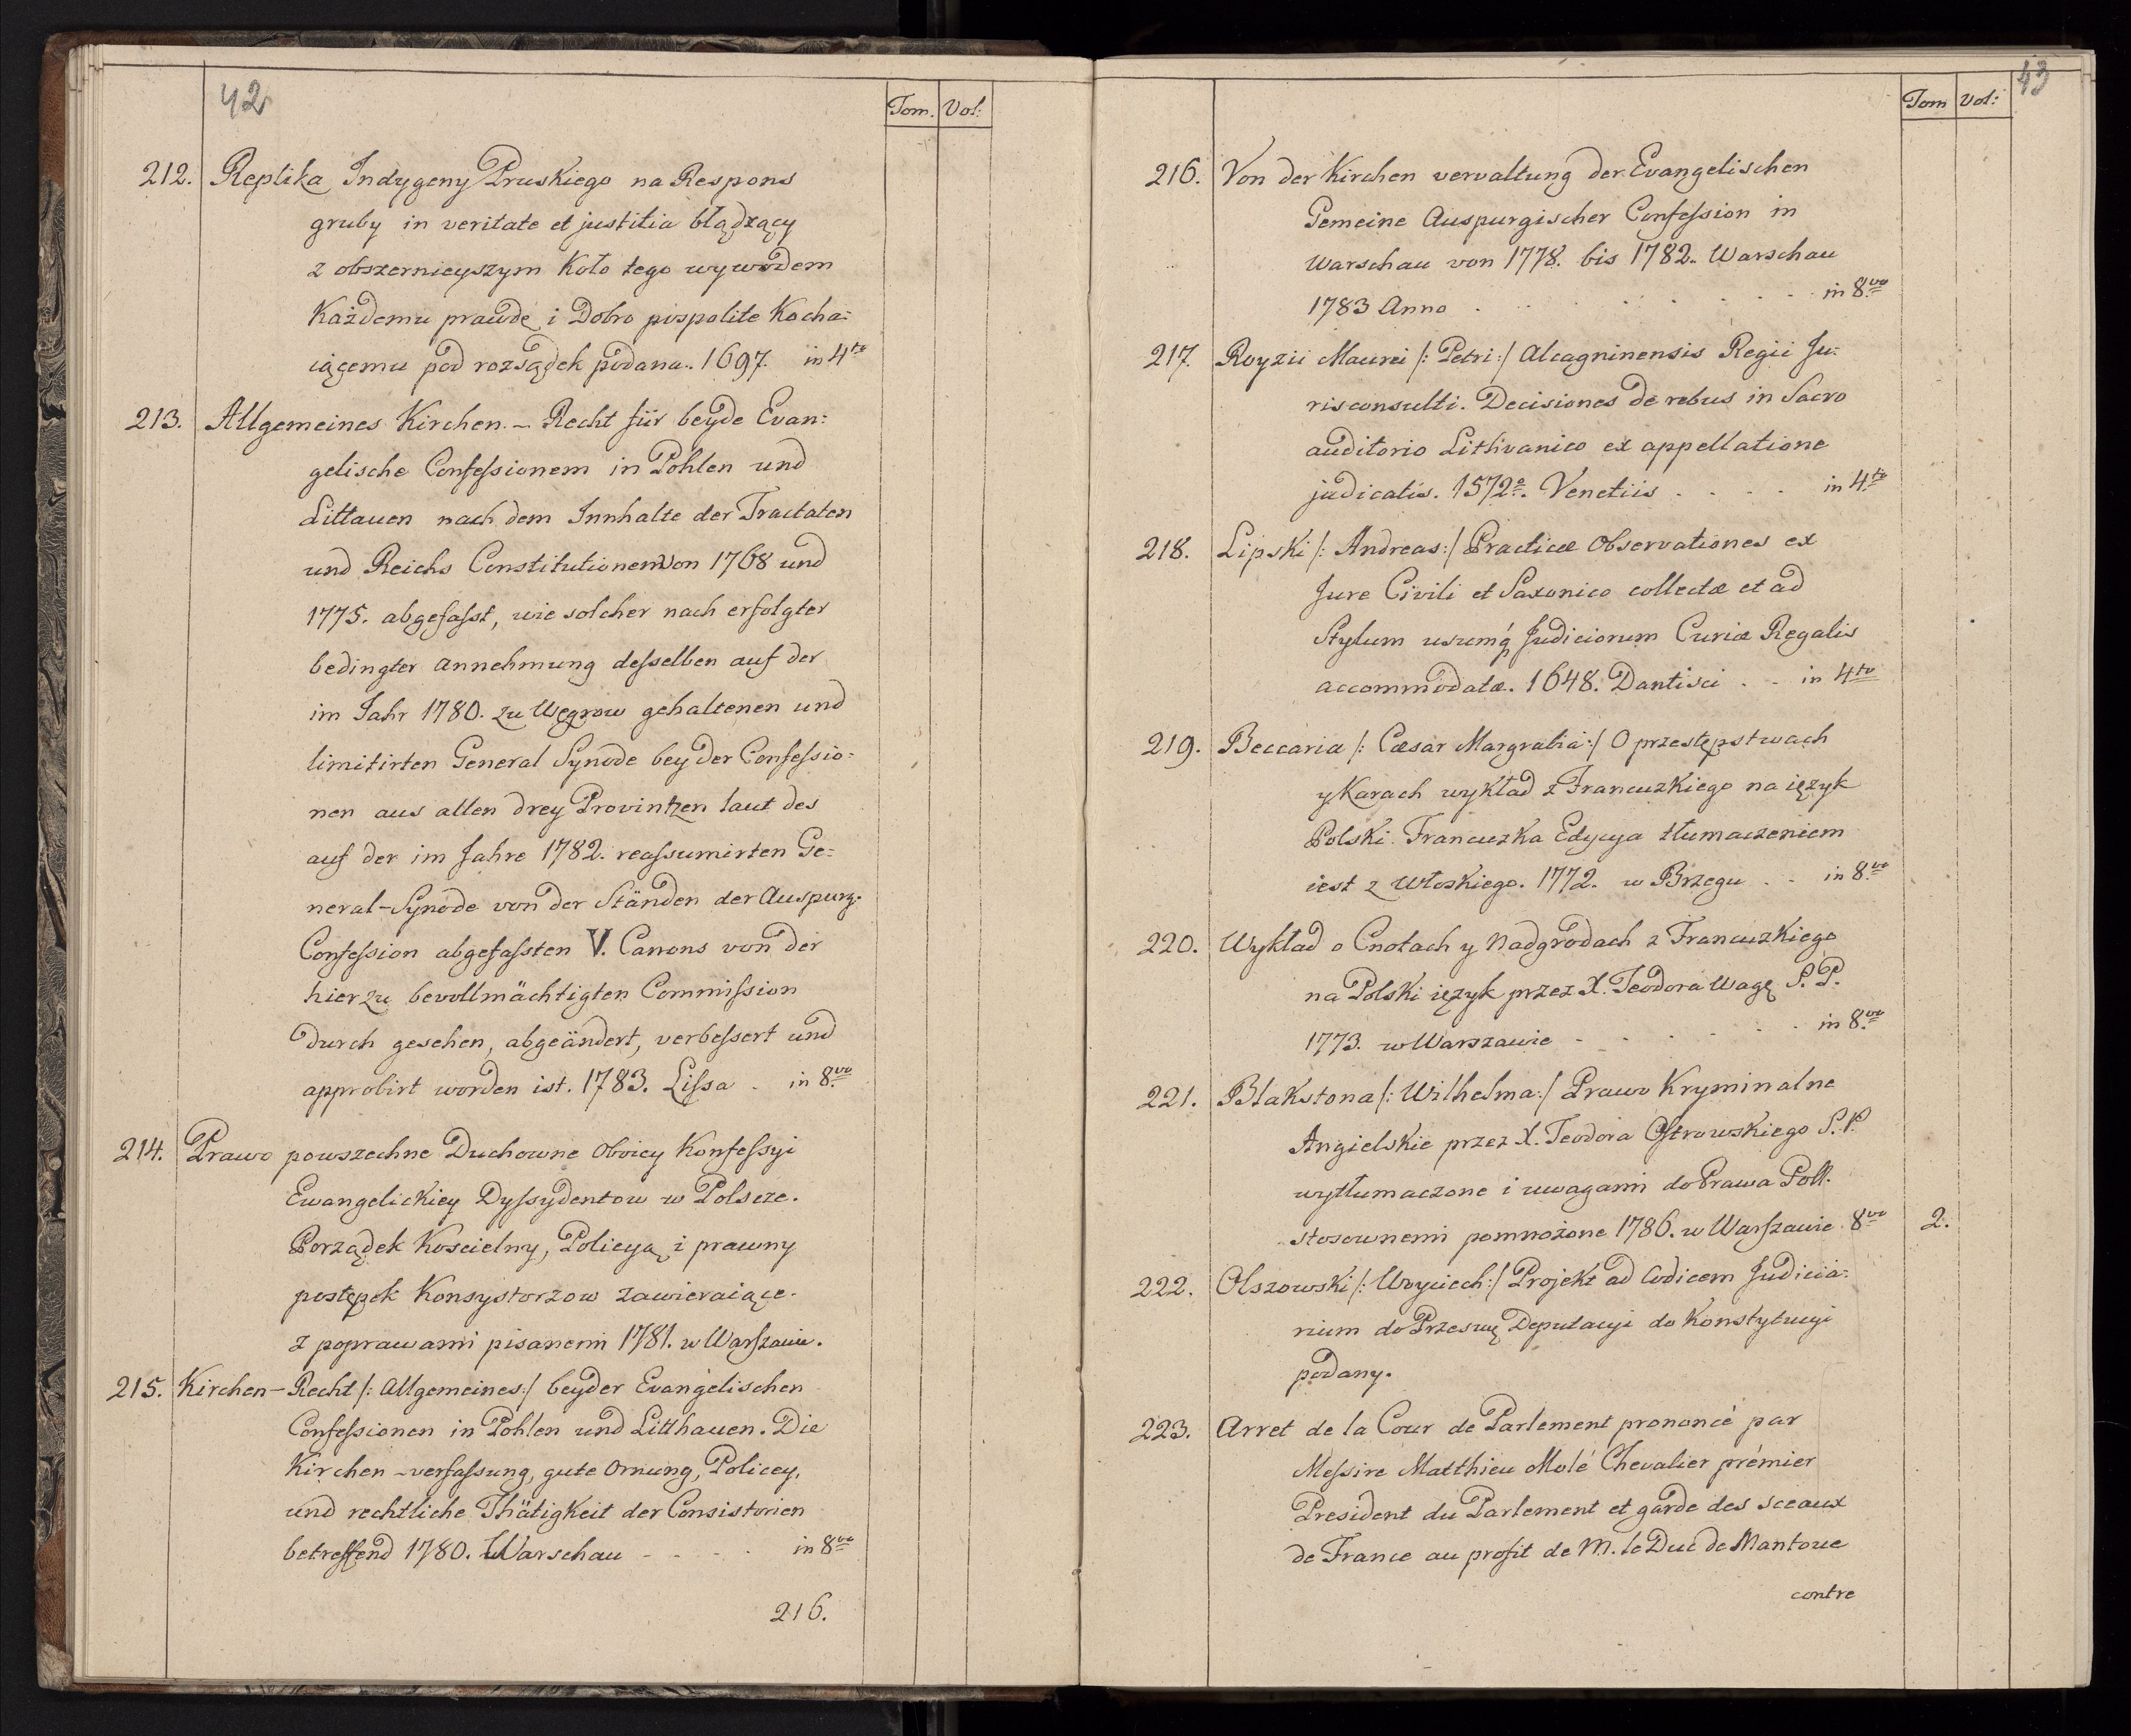 42
Tom. Vol:
212. Replika Indygeny Pruskiego na Respons
gruby in veritate et justitia błądzący
z obszernieyszym koło tego wywodem
Każdemu prawdę i Dobro pospolite Kocha:
iącemu pod rozsądek podana. 1697. in 4to
213. Allgemeines Kirchen - Recht für beyde Evan:
gelische Confessionem in Pohlen und
Littauen nach dem Innhalte der Tractaten
und Reichs Constitutionem von 1768 und
1775. abgefasst, wie solcher nach erfolgter
bedingter Annehmung desselben auf der
im Jahr 1780. zu Węgrow gehaltenen und
limitirten General Synode beyder Confessio:
nen aus allen drey Provintzen laut des
auf der im Jahre 1782. reassumirten Ge:
neral-Synode von der Ständen der Auspurg.
Confession abgefassten V. Canons von der
hierzu bevollmächtigten Commission
durch gesehen, abgeändert, verbessert und
approbirt worden ist. 1783. Lissa . in 8vo
214. Prawo powszechne Duchowne oboiey Konfessyi
Ewangelickiey Dyssydentow w Polscze.
Porządek Koscielny, Policyą i prawny
postępek Konsystorzow zawieraiące.
z poprawami pisanemi 1781. w Warszawie.
215. Kirchen-Recht /: Allgemeines :/ beyder Evangelischen
Confessionen in Pohlen und Litthauen. Die
Kirchen-verfassung, gute Ornung, Policey,
und rechtliche Thätigkeit der Consistorien
betreffend 1780. Warschau - - - . in 8vo
216.
43
Tom Vol:
216. Von der Kirchen vervaltung der Evangelischen
Gemeine Auspurgischer Confession in
Warschau von 1778. bis 1782. Warschau
1783 Anno . . . . . . . in 8vo
217. Royzii Maurei /: Petri :/ Alcagninensis Regii Ju:
risconsulti. Decisiones de rebus in Sacro
auditorio Lithvanico ex appellatione
judicatis. 1572o. Venetiis . . . . in 4to
218. Lipski /: Andreas :/ Practicæ Observationes ex
Jure Civili et Saxonico collectæ et ad
Stylum usumq́ Judiciorum Curiæ Regalis
accommodatæ. 1648. Dantisci . . in 4to
219. Beccaria /: Cæsar Margrabia :/ O przestępstwach
y Karach wykład z Francuzkiego na ięzyk
Polski. Francuzka Edycya tłumaczeniem
iest z Włoskiego. 1772. w Brzegu . . in 8vo
220. Wykład o Cnotach y Nadgrodach z Francuzkiego
na Polski ięzyk przez X. Teodora Wagę S. P.
1773. w Warszawie - . . . . . in 8vo
221. Blakstona /: Wilhelma :/ Prawo Kryminalne
Angielskie przez X. Teodora Ostrowskiego S. P.
wytłumaczone i uwagami do Prawa Poll.
stosownemi pomnożone 1786. w Warszawie. 8vo 2.
222. Olszowski /: Woyciech :/ Projekt ad Codicem Judicia:
rium do Przesw̨ Deputacyi do Konstytucyi
podany.
223. Arret de la Cour de Parlement prononcé par
Messire Matthieu Molé Chevalier prémier
President du Parlement et garde des sceaux
de France au profit de M. le Duc de Mantoue
contre